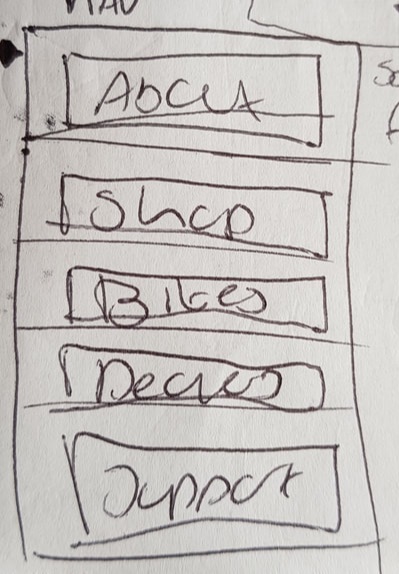 NAV
About
Shop
Bikes
Decks
Support